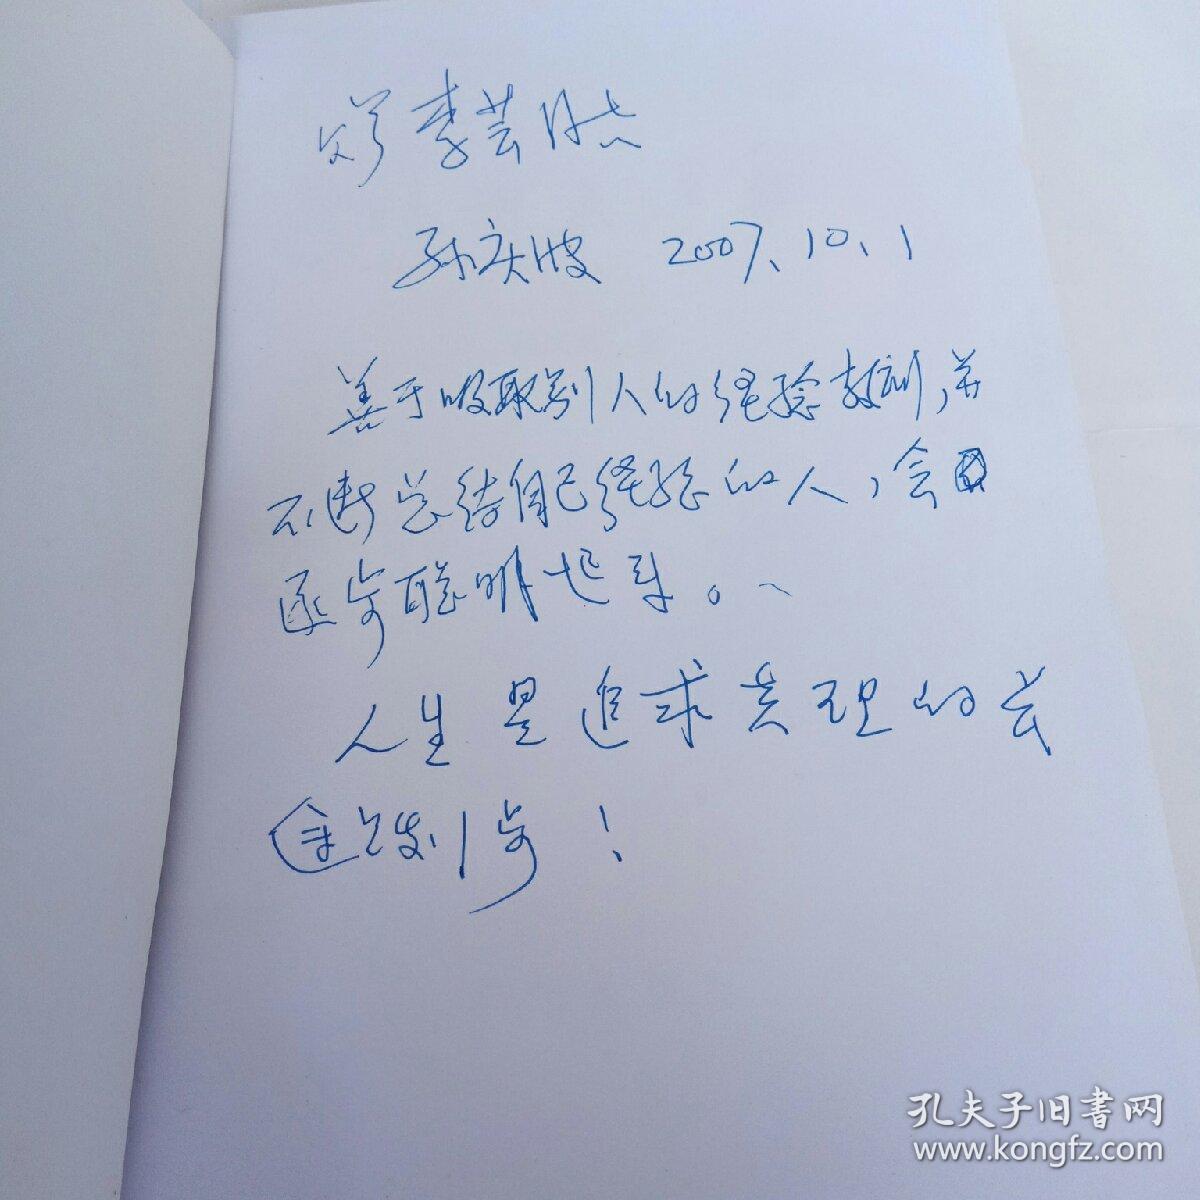 李芸同志
孙庆波 2007.10.1
善于吸取别人的经验教训，并
不断总结自己经验的人，会
逐步聪明起来。
人生是追求真理的长
！
孔夫子旧书网
www.kongfz.com